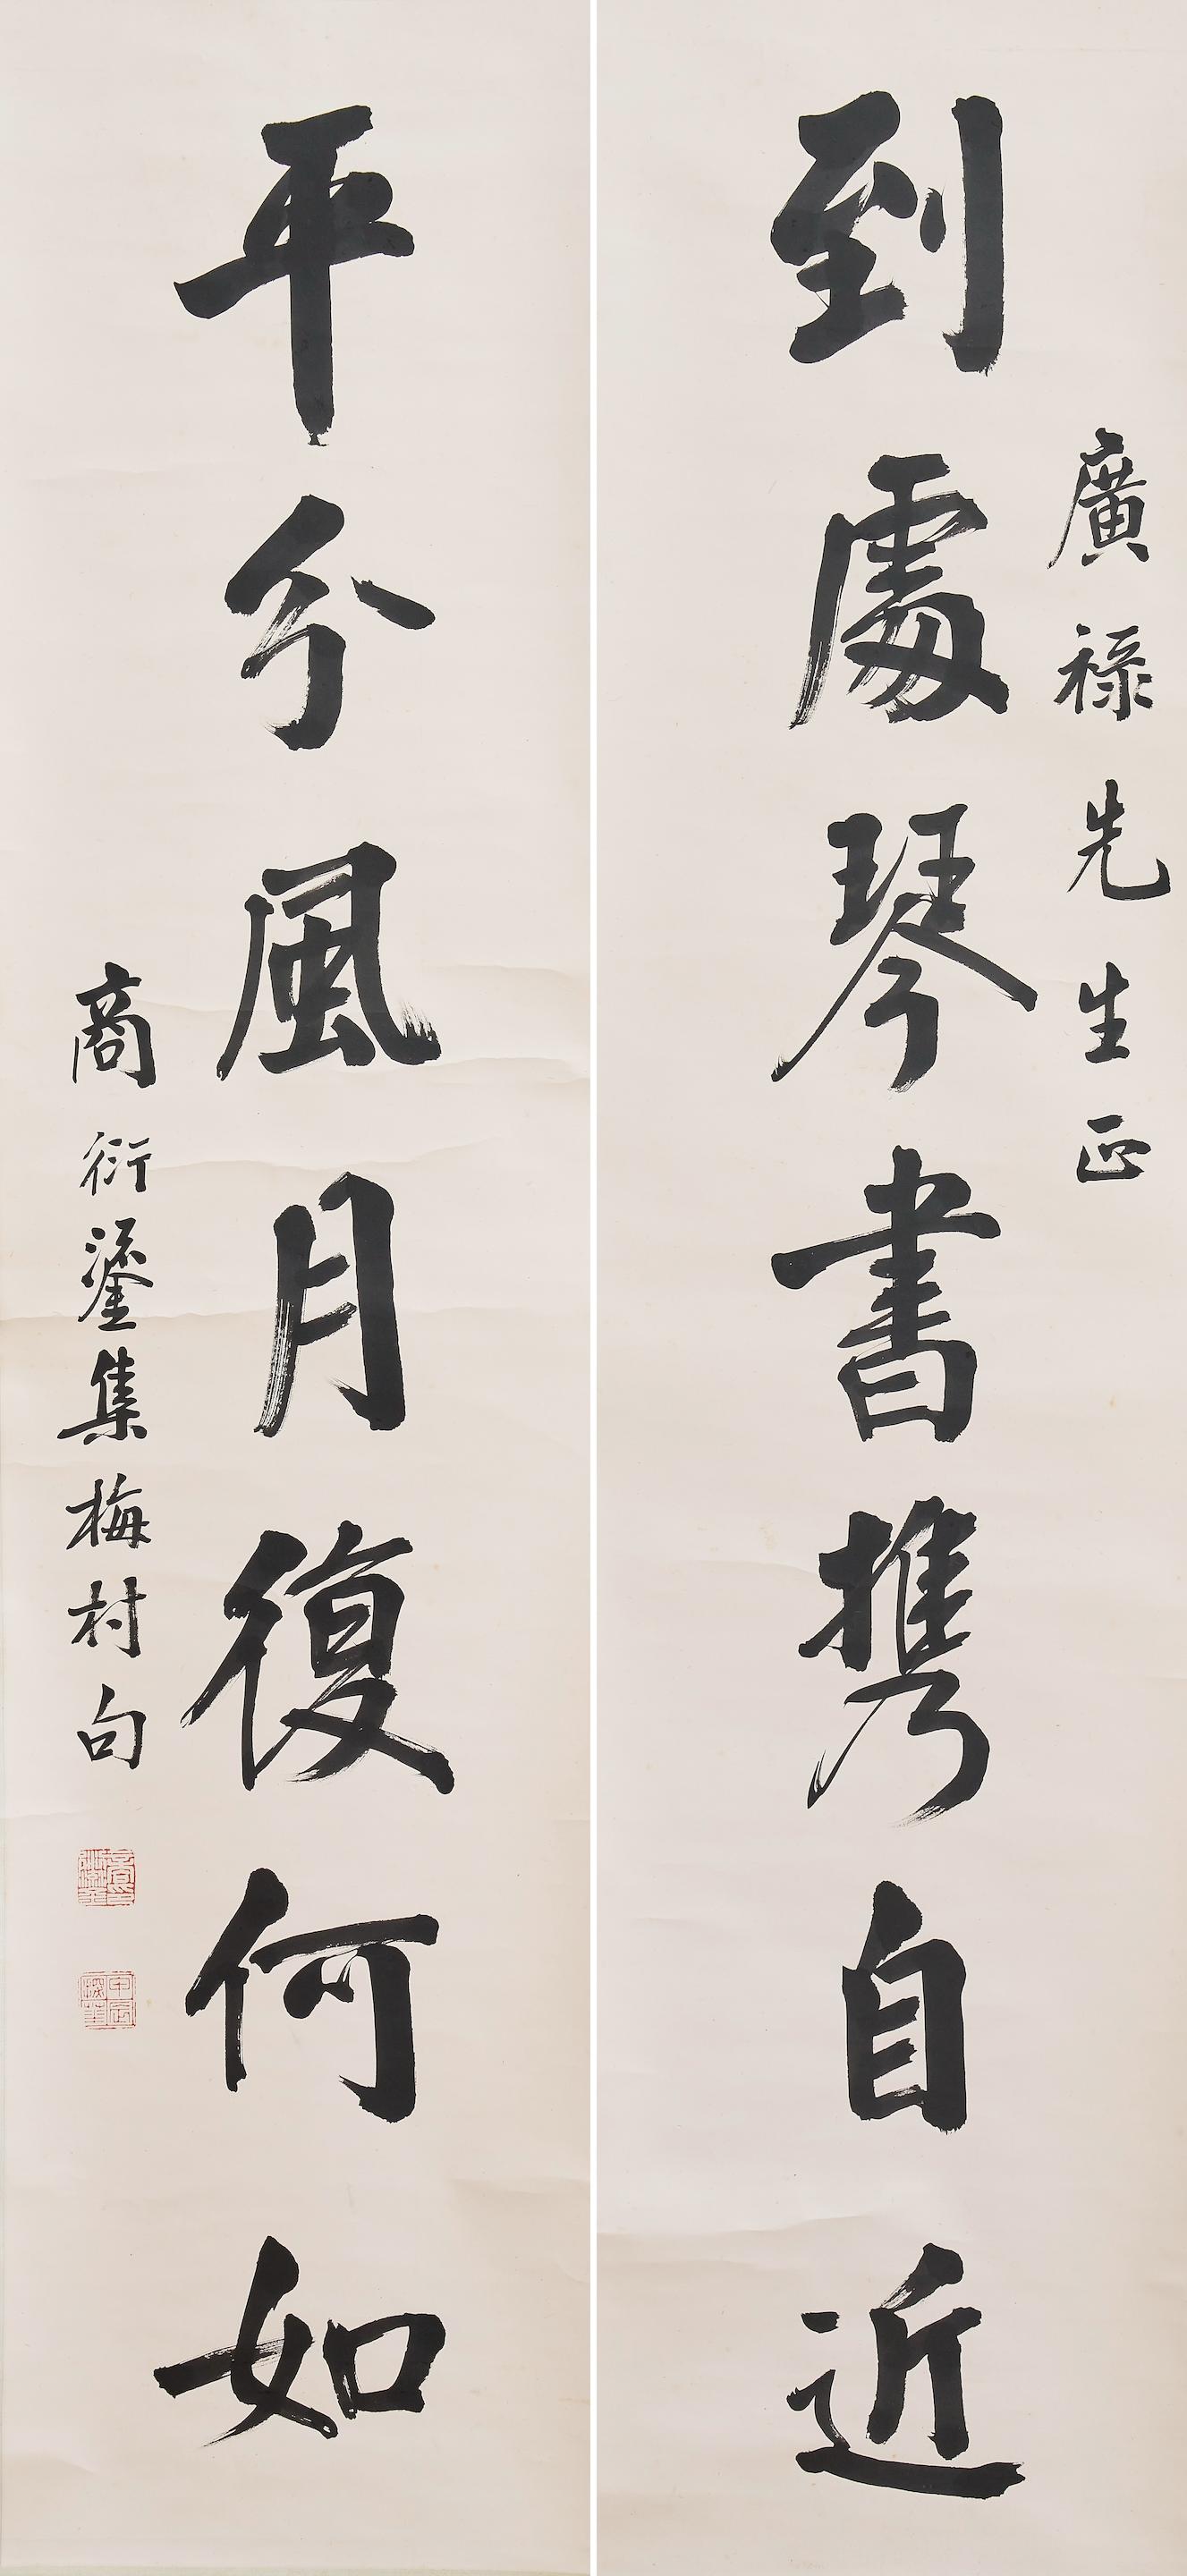 廣祿先生正
到處琴書攜自近
平分風月復何如
商衍鎏集梅村句